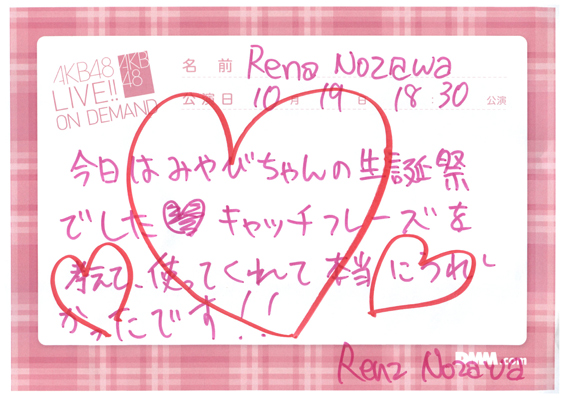 AKB48
LIVE!!
ON DEMAND
AKB
48
名前 Rena Nozawa
公演日 10月19日 18:30 公演
今日はみやびちゃんの生誕祭
でした♥ キャッチフレーズを
考えて、使ってくれて本当にうれし
かったです!!
DMM.com
Rena Nozawa